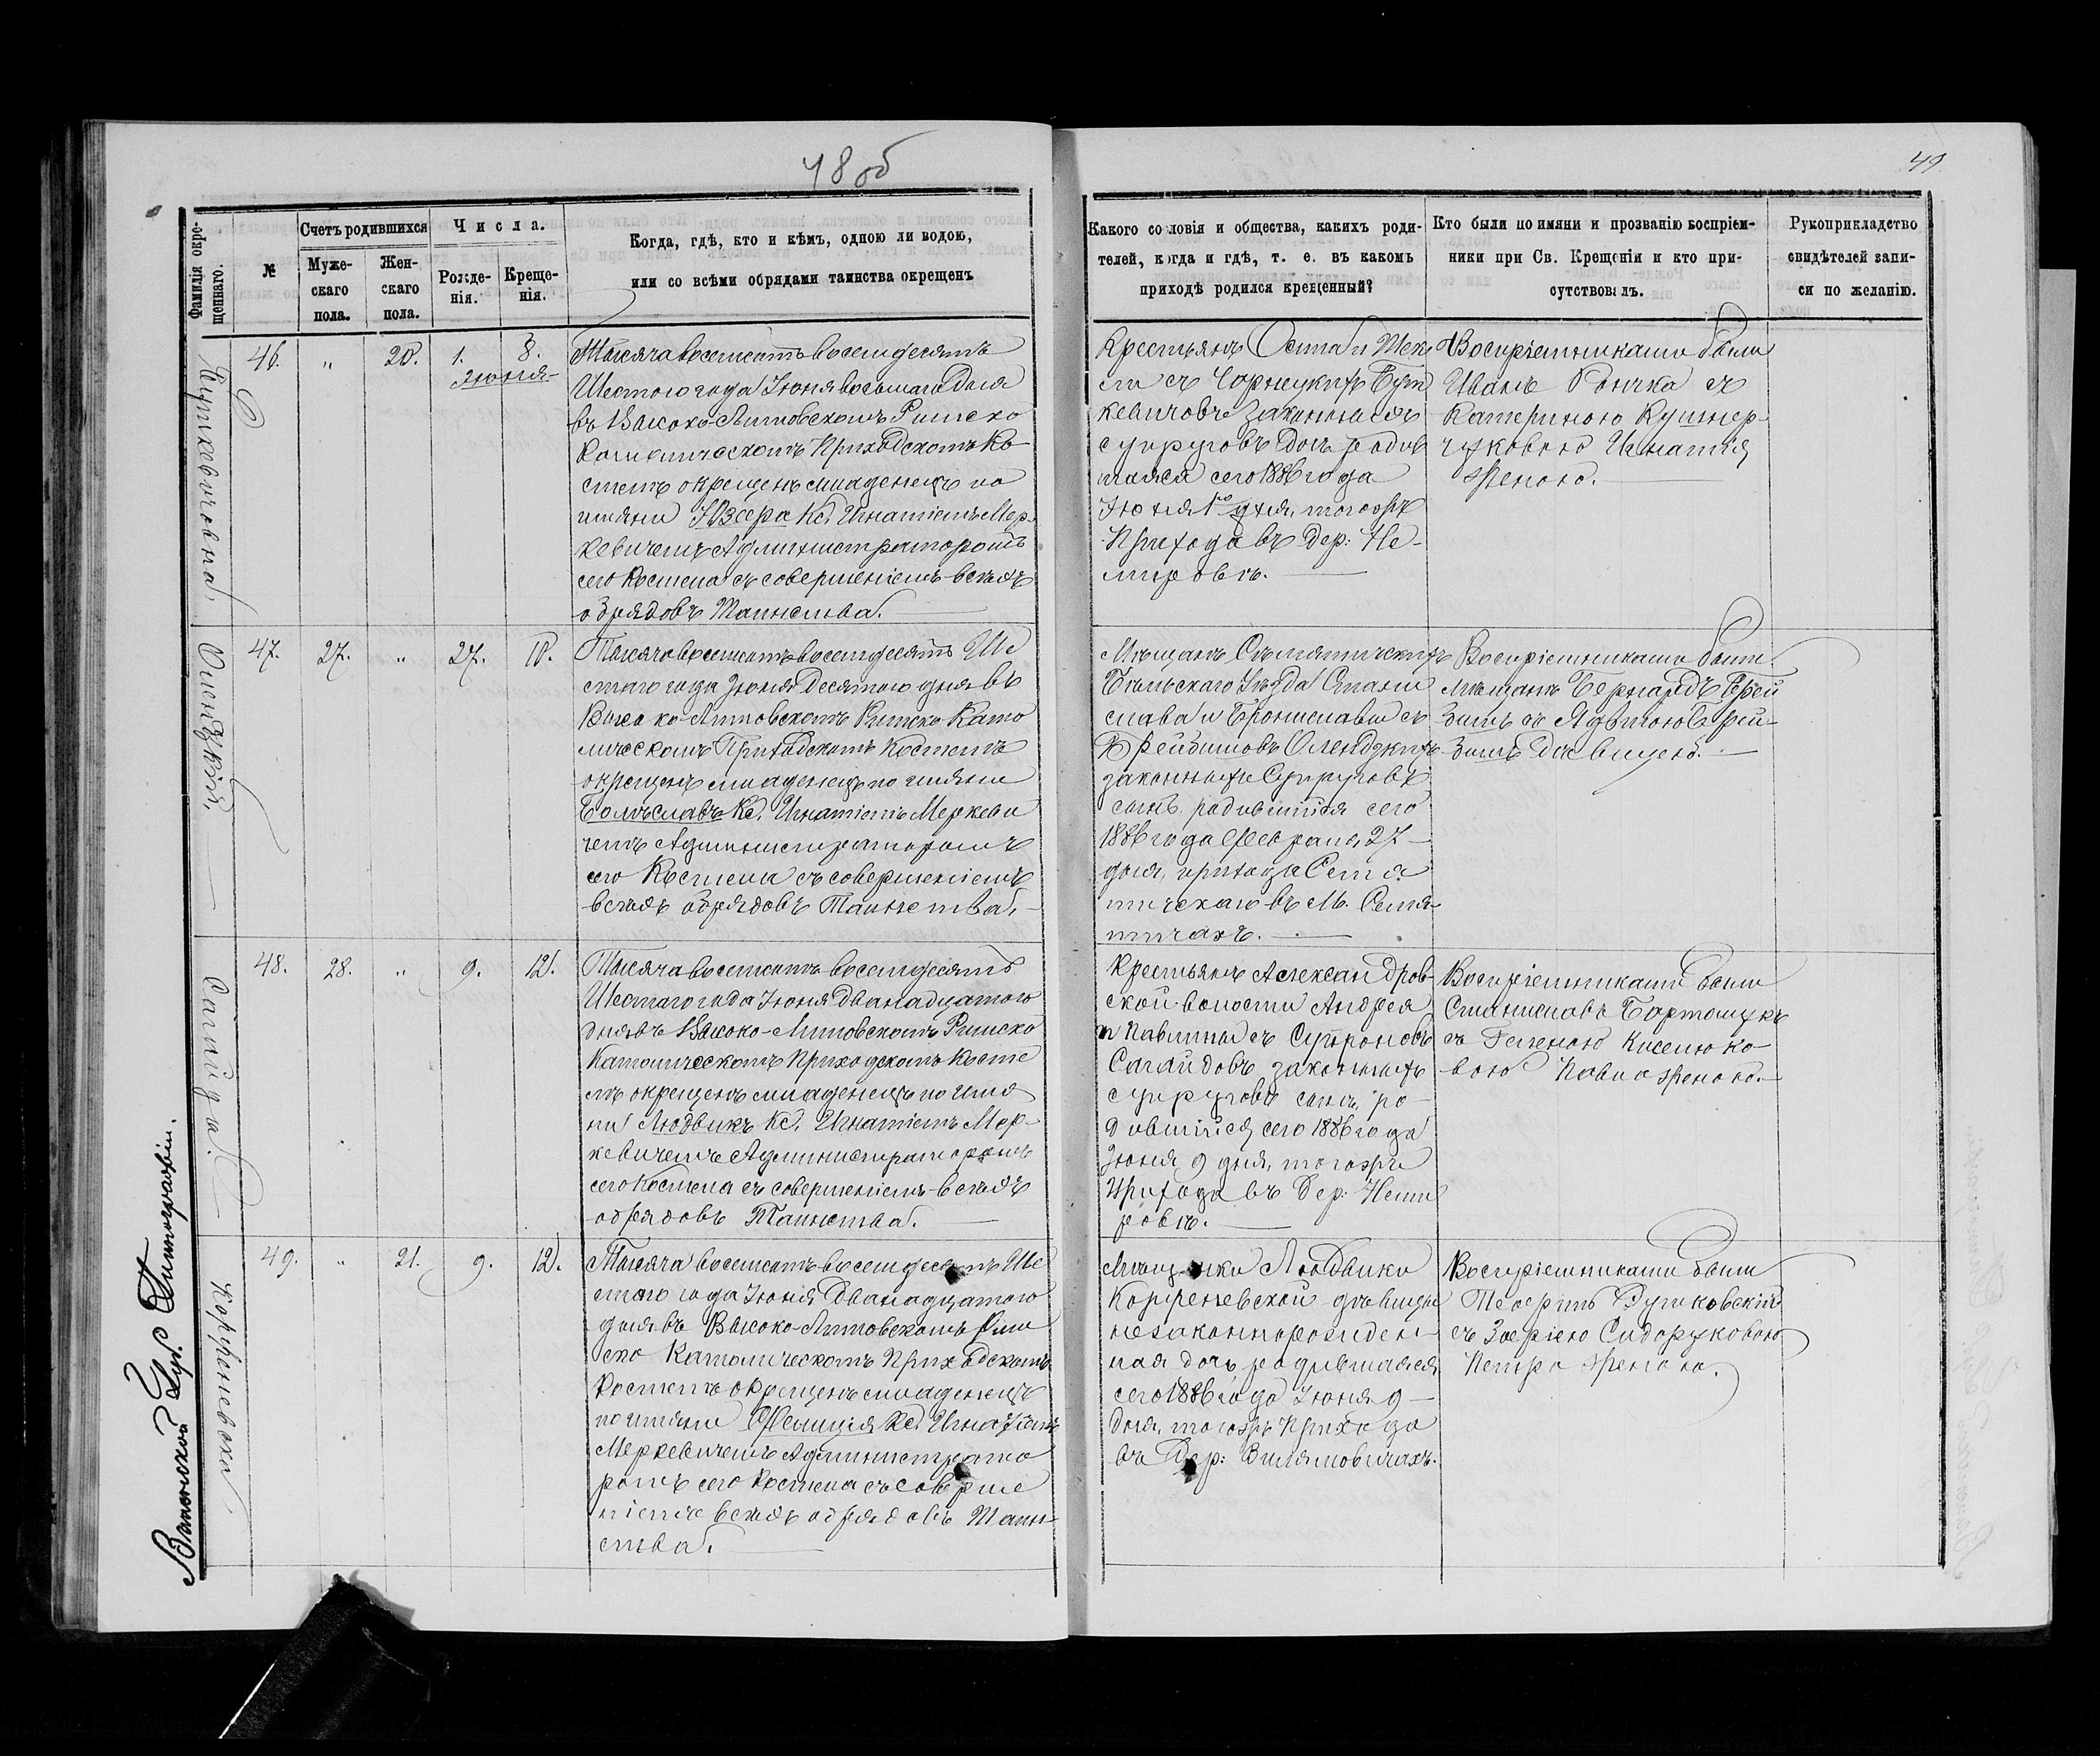 48 об
49
Фамилія окре-
щеннаго.
№
Счетъ родившихся
Муже-
скаго
пола.
Жен-
скаго
пола.
Числа.
Рожде-
нія.
Креще-
нія.
Когда, гдѣ, кто и кѣмъ, одною ли водою,
или со всѣми обрядами таинства окрещенъ
Какого сословія и общества, какихъ роди-
телей, когда и гдѣ, т. е. въ какомъ
приходѣ родился крещенный?
Кто были по имяни и прозванію воспріем-
ники при Св. Крещеніи и кто при-
сутствовалъ.
Рукоприкладство
свидѣтелей запи-
си по желанію.
46. " 20. 1. 8.
Іюня
Тысяча восемсотъ восемдесятъ
Шестого года Іюня восьмаго Дня
въ Высоко-Литовскомъ Римско
Католическомъ Приходскомъ Ко-
стелѣ окрещенъ младенецъ по
имяни Юзефа Кс. Игнатіемъ Мер-
кевичемъ Администраторомъ
сего Костела съ совершеніемъ всѣхъ
обрядовъ Таинства.
Крестьянъ Осипа и Тек
ли съ Чарнецкихъ
кевичовъ Законныхъ
супруговъ дочь родив
шаяся сего 1886 года
Іюня 1го дня, тогожъ
Прихода въ дер: Не-
мировкѣ.
Воспріемниками были
Иванъ съ
Катериною Кушнер-
чуковою Игнатія
женою.
47. 27. " 27. 10.
Олендзкій
Тысяча восемсотъ восемдесятъ Ше
стаго года Іюня Десятого дня въ
Высоко-Литовскомъ Римско Като
лическомъ Приходскомъ Костелѣ
окрещенъ младенецъ по имяни
Болѣславъ Кс. Игнатіемъ Меркеви
чемъ Администраторомъ
сего Костела съ совершеніемъ
всѣхъ обрядовъ Таинства.
Мѣщанъ Сѣмятическихъ
Бѣльскаго Уѣзда Стани
слава и Брониславы съ
Олендзкихъ
законныхъ Супруговъ
сынъ родившійся сего
1886 года Февраля 27
дня, прихода Семя
тическаго въ М. Семя-
тичахъ.
Воспріемниками были
мѣщанъ Бернардъ
съ
дѣвицею.
48. 28. " 9. 12.
Сагайда
Тысяча восемсотъ восемдесятъ
Шестаго года Іюня Дванадцатого
дня въ Высоко-Литовскомъ Римско
Католическомъ Приходскомъ Косте
лѣ окрещенъ младенецъ по имя
ни Людвикъ Кс. Игнатіемъ Мер-
кевичемъ Администраторомъ
сего Костела съ совершеніемъ всѣхъ
обрядовъ Таинства.
Крестьянъ Александров-
ской волости Андрея
и Павлины съ Супроновъ
Сагайдовъ законныхъ
супруговъ сынъ, ро-
дившійся сего 1886 года
Іюня 9 дня, тогожъ
Прихода въ Дер: Неми
ровкѣ.
Воспріемниками были
Станиславъ Бартошукъ
съ Геленою Киселюко-
вою Павла женою.
49. " 21. 9. 12.
Корженевска
Тысяча восемсотъ восемдесятъ Ше
стаго года Іюня Дванадцатого
дня въ Высоко-Литовскомъ Рим
ско Католическомъ Приходскомъ
Костелѣ окрещенъ младенецъ
по имяни Фелиція Кс. Игнатіемъ
Меркевичемъ Администрато
ромъ сего Костела съ соверше
ніемъ всѣхъ обрядовъ Таин-
ства.
Мѣщанки Людвики
Корженевской дѣвицы
незаконнорожден-
ная дочь родившаяся
сего 1886 года Іюня 9
дня, тогожъ Прихода
въ Дер: Вилямовичахъ.
Воспріемниками были
Теофилъ
съ Зофіею Сидоруковою
Петра женою.
Виленской Губ. Типографіи.